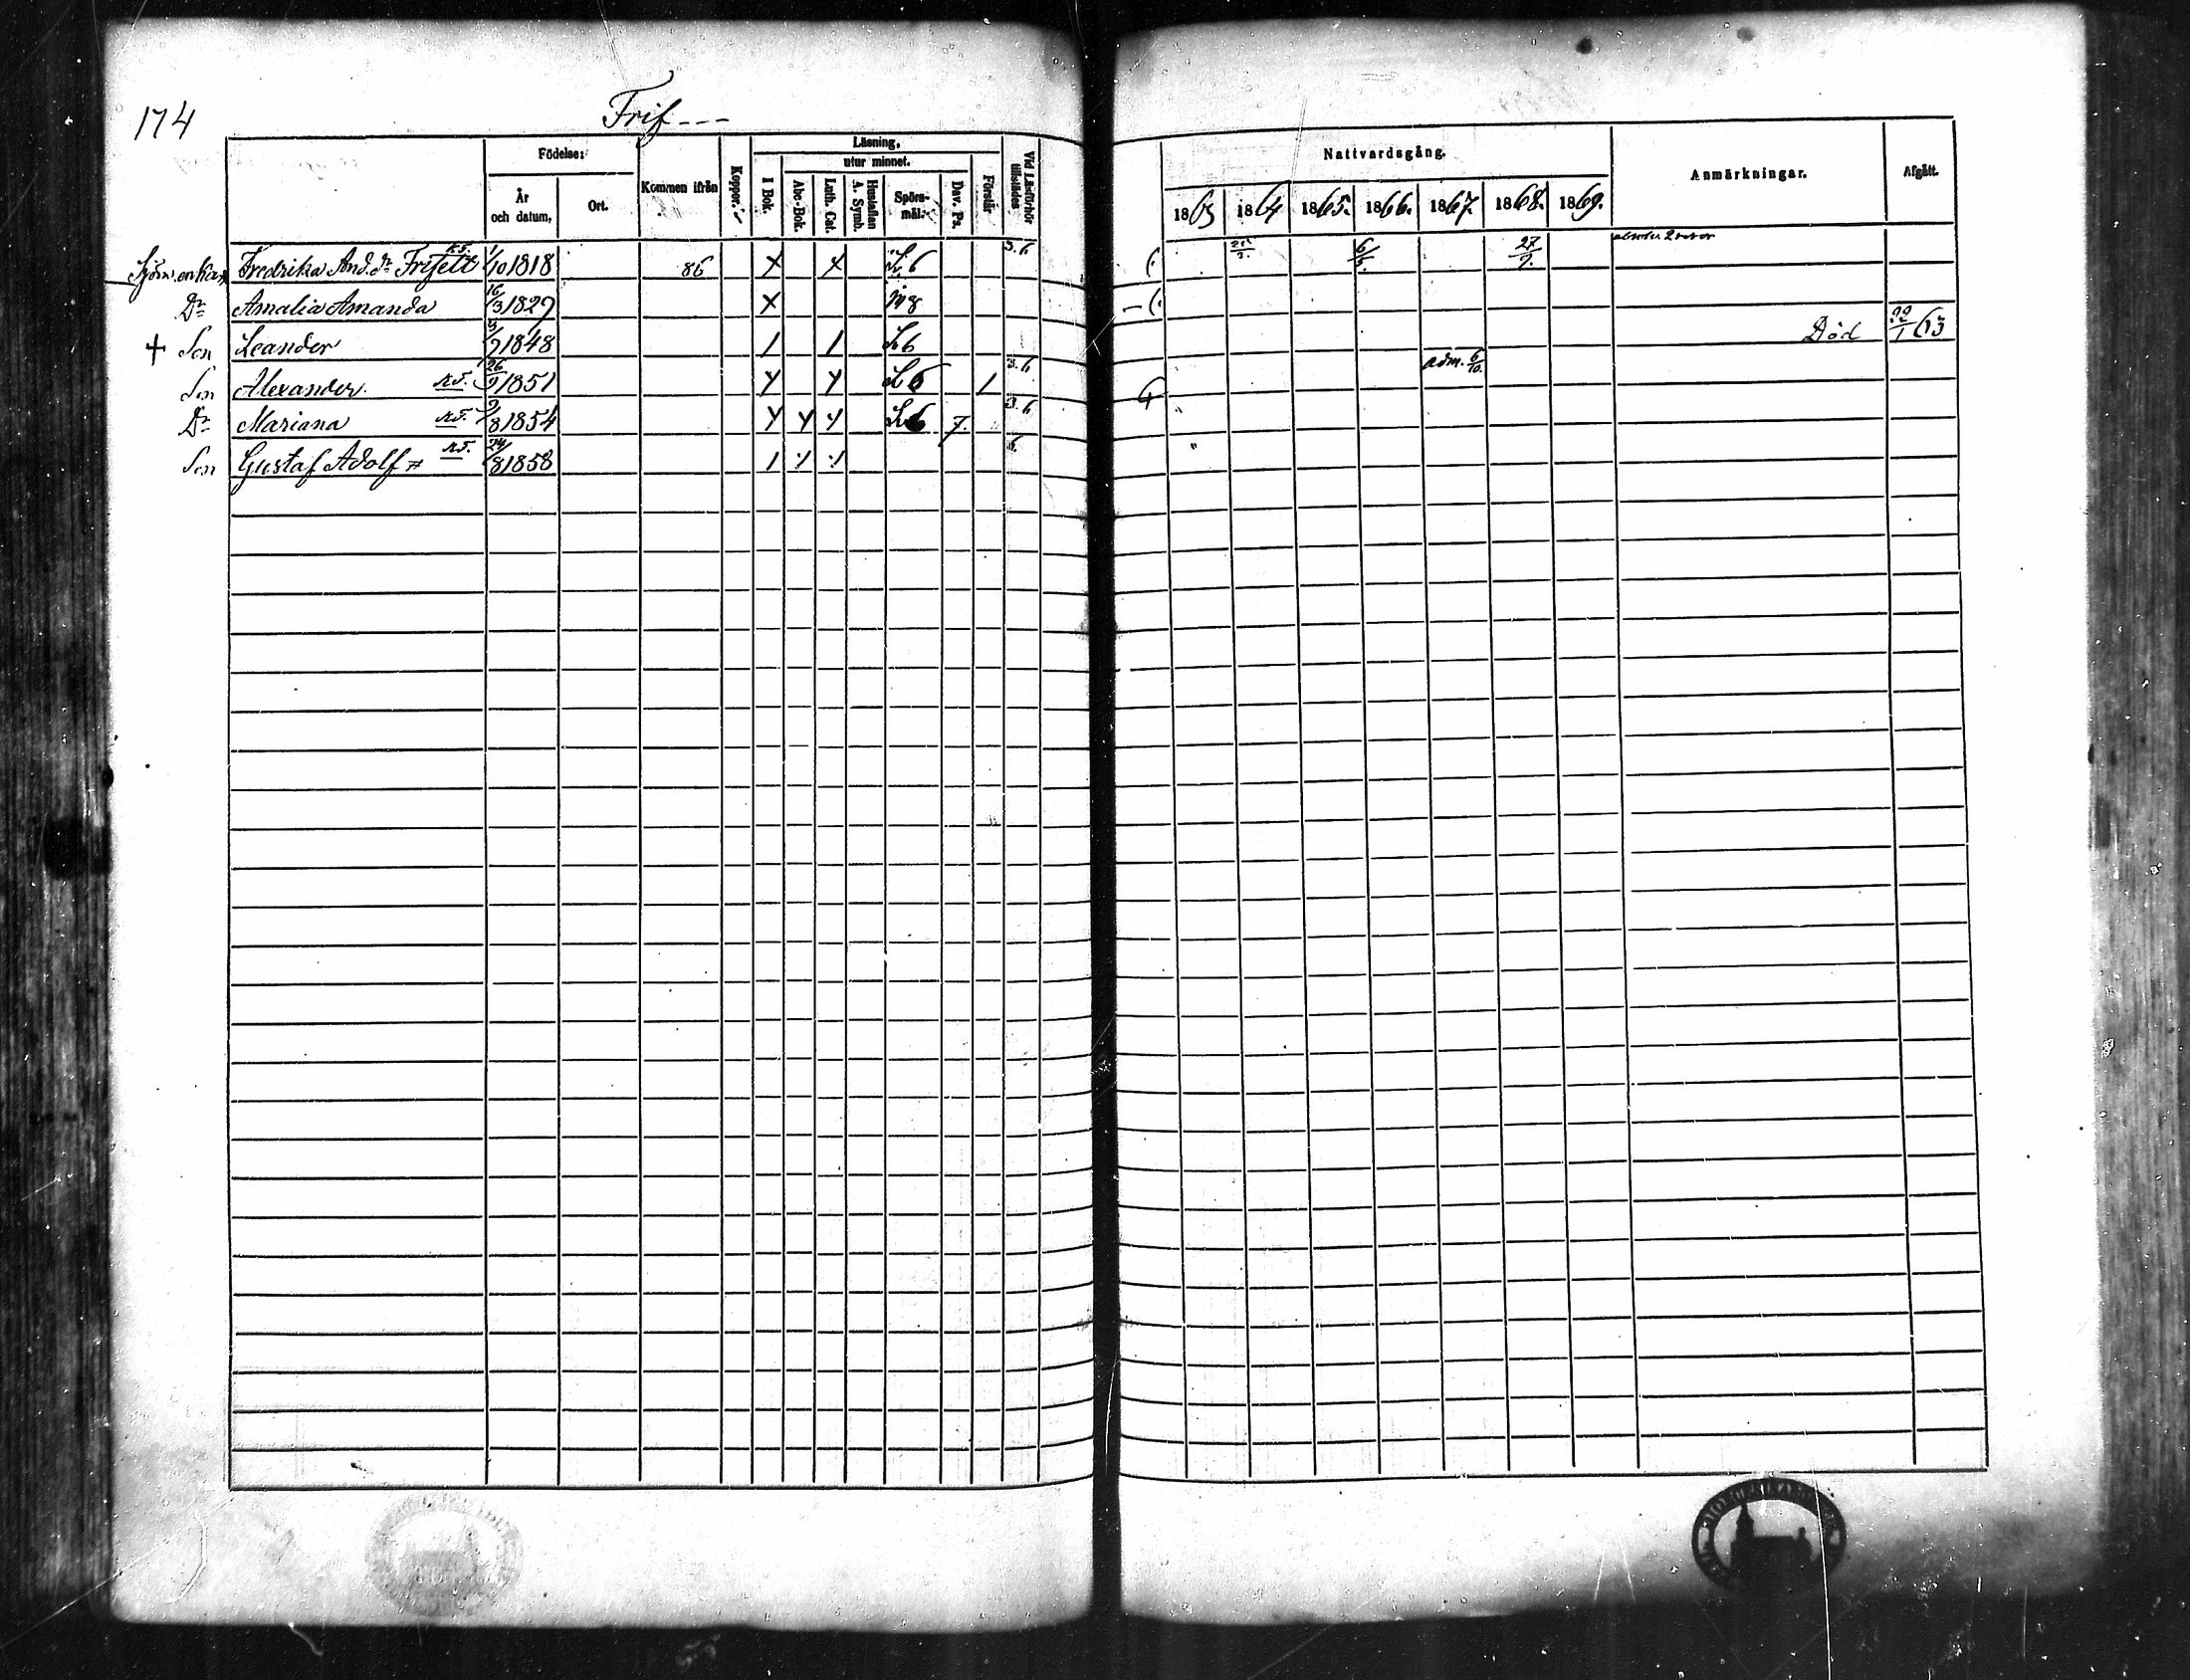 174
Frif---
Födelse:
År och datum,
Ort.
Kommen ifrån
Koppor.
Läsning,
utur minnet.
I Bok.
Abc-Bok.
Luth. Cat.
Hustaflan A. Symb.
Spörs-mål.
Dav. Ps.
Förstår
Vid Läsförhör tillstädes
Nattvardsgång.
1863 1864 1865. 1866. 1867. 1868. 1869.
Anmärkningar.
Afgått.
Sjöm. enkan Fredrika And. dr Friselt 1/10 1818 86 X X L 6 3. 6 6/5. 27/7.
Dr Amalia Amanda 16/3 1827 X 8
+ Son Leander 1848 / / L 6 Död 22/1 63
Son Alexander. 26/9 1851 Y Y L 6 / 3. 6 adm. 6/10.
Dr Mariana 1854 Y Y Y L 6 7. 3. 6
Son Gustaf Adolf 24/8 1858